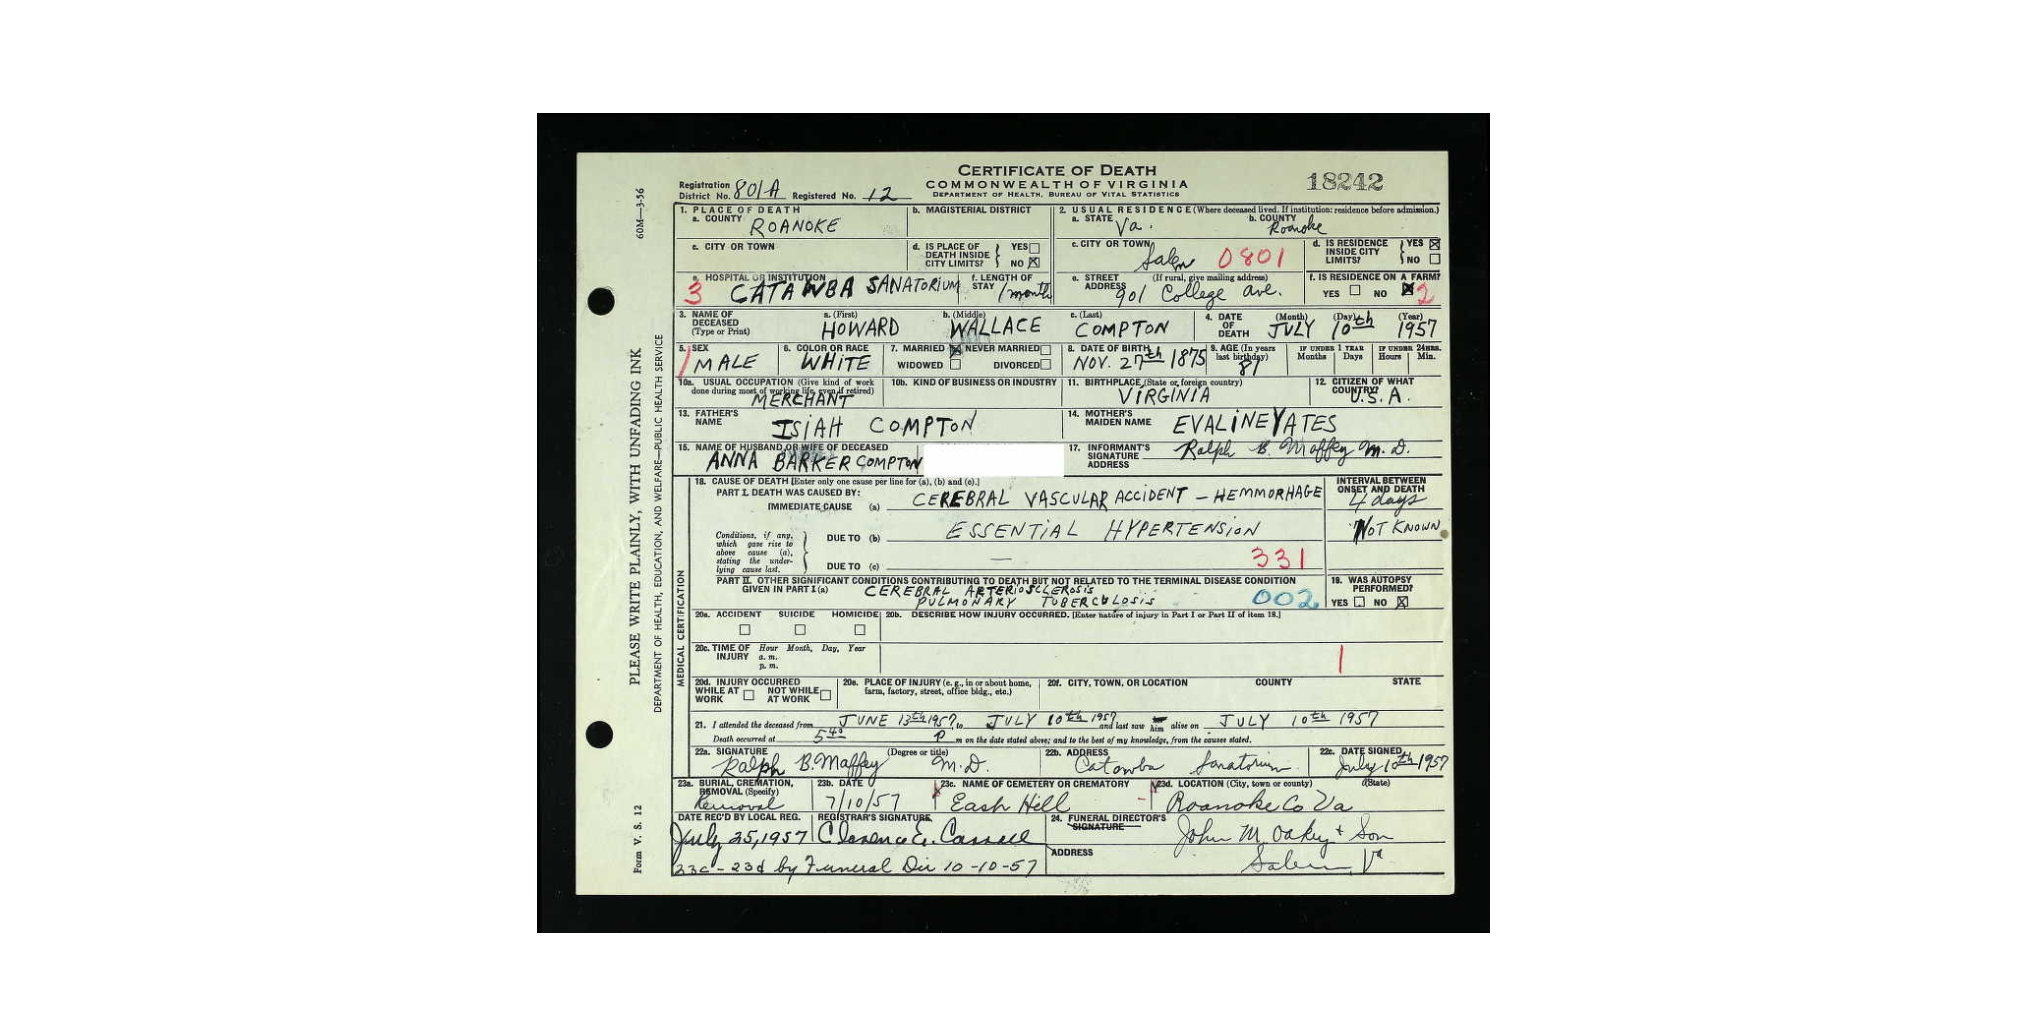 CERTIFICATE OF DEATH
COMMONWEALTH OF VIRGINIA
DEPARTMENT OF HEALTH, BUREAU OF VITAL STATISTICS
18242
Registration District No. 801A Registered No. 12
60M—3-56
PLEASE WRITE PLAINLY, WITH UNFADING INK
DEPARTMENT OF HEALTH, EDUCATION, AND WELFARE—PUBLIC HEALTH SERVICE
Form V. S. 12
1. PLACE OF DEATH
a. COUNTY ROANOKE
b. MAGISTERIAL DISTRICT
2. USUAL RESIDENCE (Where deceased lived. If institution: residence before admission.)
a. STATE Va.
b. COUNTY Roanoke
c. CITY OR TOWN
d. IS PLACE OF DEATH INSIDE CITY LIMITS? YES NO
c. CITY OR TOWN Salem 0801
d. IS RESIDENCE INSIDE CITY LIMITS? YES NO
e. HOSPITAL OR INSTITUTION
3 CATAWBA SANATORIUM
f. LENGTH OF STAY 1 month
e. STREET ADDRESS (If rural, give mailing address)
901 College Ave.
f. IS RESIDENCE ON A FARM?
YES NO 2
3. NAME OF DECEASED (Type or Print)
a. (First) HOWARD b. (Middle) WALLACE c. (Last) COMPTON
4. DATE OF DEATH (Month) (Day) (Year)
JULY 10th 1957
5. SEX
1 MALE
6. COLOR OR RACE
WHITE
7. MARRIED NEVER MARRIED
WIDOWED DIVORCED
8. DATE OF BIRTH
NOV. 27th 1875
9. AGE (In years last birthday)
81
IF UNDER 1 YEAR Months Days
IF UNDER 24 HRS. Hours Min.
10a. USUAL OCCUPATION (Give kind of work done during most of working life, even if retired)
MERCHANT
10b. KIND OF BUSINESS OR INDUSTRY
11. BIRTHPLACE (State or foreign country)
VIRGINIA
12. CITIZEN OF WHAT COUNTRY?
U.S.A.
13. FATHER'S NAME ISIAH COMPTON
14. MOTHER'S MAIDEN NAME EVALINE YATES
15. NAME OF HUSBAND OR WIFE OF DECEASED
ANNA BARKER COMPTON
17. INFORMANT'S SIGNATURE ADDRESS
Ralph B. Maffey M.D.
MEDICAL CERTIFICATION
18. CAUSE OF DEATH [Enter only one cause per line for (a), (b) and (c).]
PART I. DEATH WAS CAUSED BY:
IMMEDIATE CAUSE (a) CEREBRAL VASCULAR ACCIDENT - HEMMORHAGE
INTERVAL BETWEEN ONSET AND DEATH
4 days
Conditions, if any, which gave rise to above cause (a), stating the underlying cause last.
DUE TO (b) ESSENTIAL HYPERTENSION
NOT KNOWN
DUE TO (c) — 331
PART II. OTHER SIGNIFICANT CONDITIONS CONTRIBUTING TO DEATH BUT NOT RELATED TO THE TERMINAL DISEASE CONDITION GIVEN IN PART I (a)
CEREBRAL ARTERIOSCLEROSIS
PULMONARY TUBERCULOSIS 002
19. WAS AUTOPSY PERFORMED?
YES NO
20a. ACCIDENT SUICIDE HOMICIDE
20b. DESCRIBE HOW INJURY OCCURRED. [Enter nature of injury in Part I or Part II of item 18.]
20c. TIME OF INJURY Hour Month, Day, Year
a. m.
p. m.
1
20d. INJURY OCCURRED
WHILE AT WORK NOT WHILE AT WORK
20e. PLACE OF INJURY (e. g., in or about home, farm, factory, street, office bldg., etc.)
20f. CITY, TOWN, OR LOCATION COUNTY STATE
21. I attended the deceased from JUNE 13th 1957 to JULY 10th 1957 and last saw him alive on JULY 10th 1957
Death occurred at 5 40 P m on the date stated above; and to the best of my knowledge, from the causes stated.
22a. SIGNATURE (Degree or title)
Ralph B. Maffey M.D.
22b. ADDRESS
Catawba Sanatorium
22c. DATE SIGNED
July 10th 1957
23a. BURIAL, CREMATION, REMOVAL (Specify)
Removal
23b. DATE
7/10/57
23c. NAME OF CEMETERY OR CREMATORY
East Hill
23d. LOCATION (City, town or county) (State)
Roanoke Co Va
DATE REC'D BY LOCAL REG.
July 25, 1957
REGISTRAR'S SIGNATURE
Clarence E.
24. FUNERAL DIRECTOR'S SIGNATURE
John M. Oakey & Son
ADDRESS
Salem, Va
23c - 23d by Funeral Dir 10-10-57